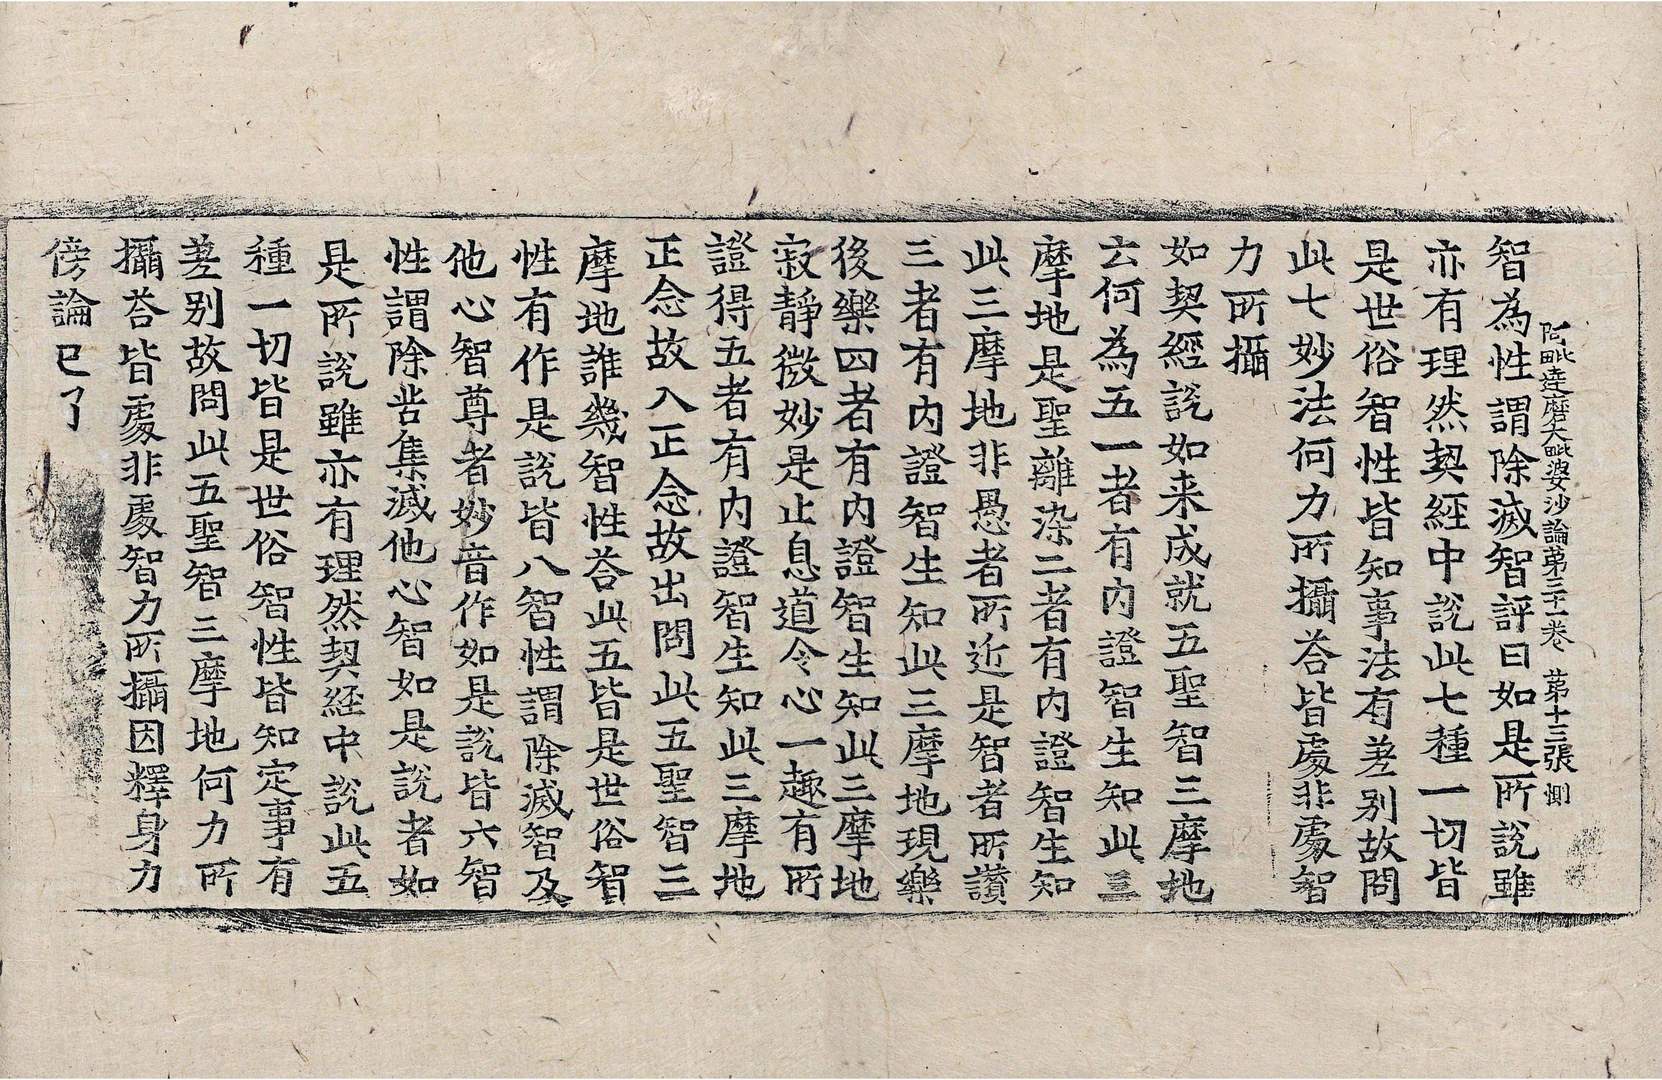 阿毗達磨大毗婆沙論第三十一卷 第十三張 惻
智為性謂除滅智評曰如是所說雖
亦有理然契經中說此七種一切皆
是世俗智性皆知事法有差別故問
此七妙法何力所攝荅皆處非處智
力所攝
如契經說如来成就五聖智三摩地
云何為五一者有内證智生知此三
摩地是聖離染二者有内證智生知
此三摩地非愚者所近是智者所讃
三者有内證智生知此三摩地現樂
後樂四者有内證智生知此三摩地
寂靜微妙是止息道令心一趣有所
證得五者有内證智生知此三摩地
正念故入正念故出問此五聖智三
摩地誰幾智性荅此五皆是世俗智
性有作是說皆八智性謂除滅智及
他心智尊者妙音作如是說皆六智
性謂除苦集滅他心智如是說者如
是所說雖亦有理然契經中說此五
種一切皆是世俗智性皆知定事有
差別故問此五聖智三摩地何力所
攝荅皆處非處智力所攝因釋身力
傍論已了